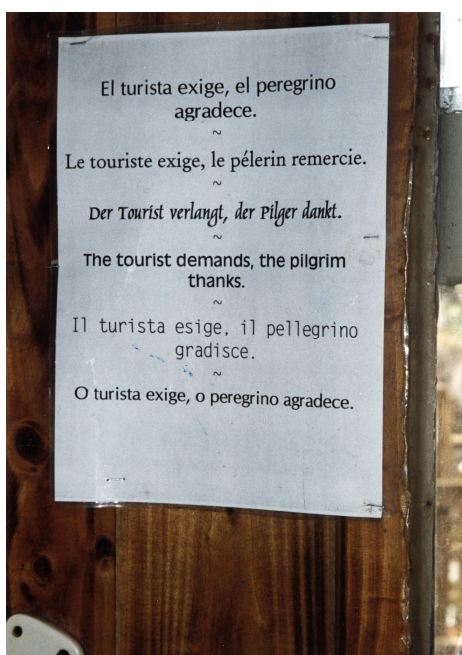 El turista exige, el peregrino
agradece.
~
Le touriste exige, le pélerin remercie.
~
Der Tourist verlangt, der Pilger dankt.
~
The tourist demands, the pilgrim
thanks.
~
Il turista esige, il pellegrino
gradisce.
~
O turista exige, o peregrino agradece.